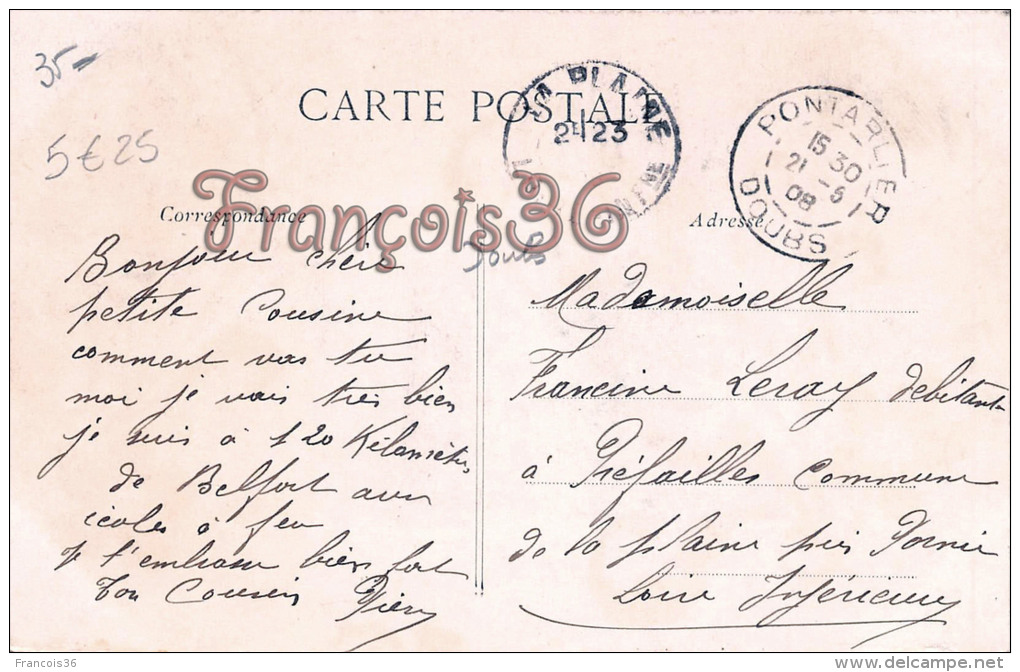 35-
5 € 25
CARTE POSTALE
LA PLAINE
21 23
INF
PONTARLIER
15 30
21 -5
08
DOUBS
François36
Correspondance
Adresse
Doubs
Bonjour chère
petite Cousine
comment vas tu
moi je vais très bien
je suis à 120 Kilomètres
de Belfort aux
écoles à feu
Je t'embrasse bien fort
Ton Cousin Pierre
Mademoiselle
Francine Leray débitante
à Préfailles Commune
de la plaine près Pornic
Loire Inférieure
François36
http://www.delcampe.net